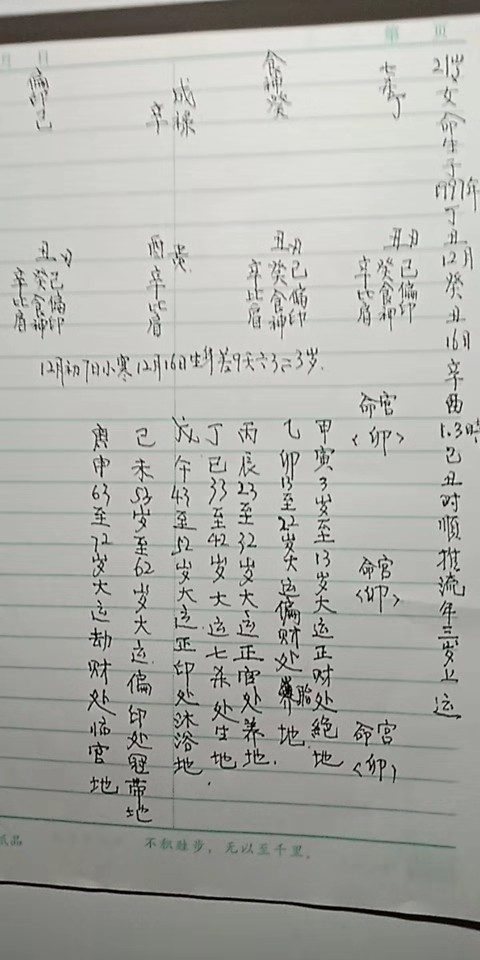 月 日 第 页
21岁女命生于1997年丁丑12月癸丑16日辛酉1.3時己丑时順推流年三岁上运
七杀丁
食神癸
成禄
辛
偏印己
丑刃
己偏印
癸食神
辛比肩
丑刃
己偏印
癸食神
辛比肩
酉
辛比肩
丑刃
己偏印
癸食神
辛比肩
12月初7日小寒12月16日生
命宫
<卯>
命宫
<卯>
命宫
<卯>
甲寅3岁至13岁大运正财处絕地
乙卯13至22岁大运偏财处胎地
丙辰23至32岁大运正官处养地.
丁巳33至42岁大运七杀处生地.
戊午43至52岁大运正印处沐浴地
己未53岁至62岁大运偏印处冠带地
庚申63至72岁大运劫财处临官地
纸品 不积跬步，无以至千里。